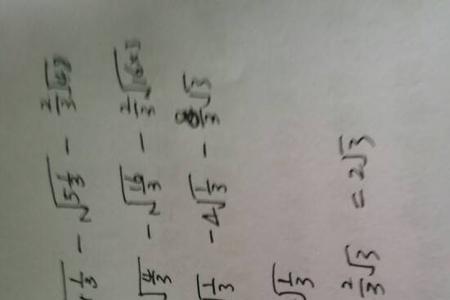 √1/3 - √5 1/3 - 2/3√48
√4/3 - √16/3 - 2/3√16×3
√1/3 - 4√1/3 - 8/3√3
√1/3
2/3√3 = 2√3